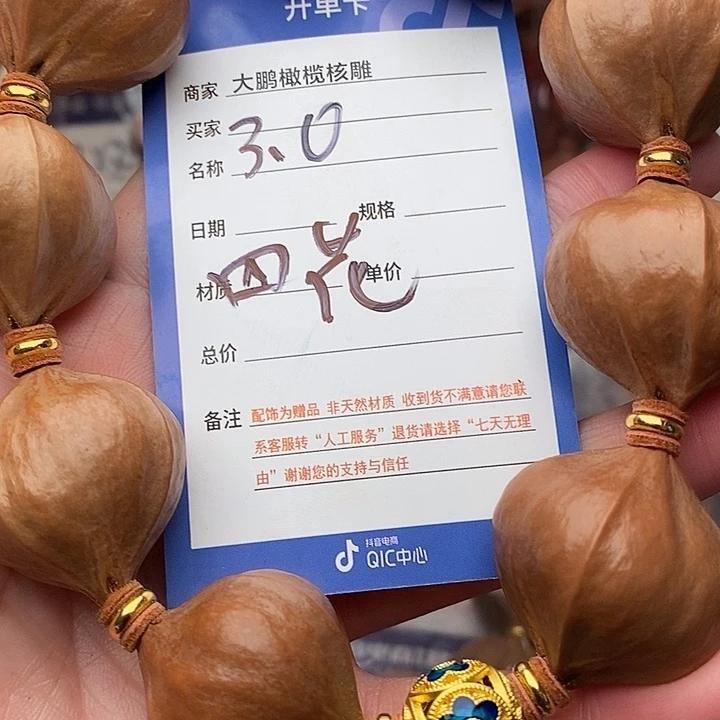 开单卡
商家 大鹏橄榄核雕
买家
3.0
名称
日期 规格
四花
材质 单价
总价
备注 配饰为赠品 非天然材质 收到货不满意请您联
系客服转“人工服务”退货请选择“七天无理
由”谢谢您的支持与信任
抖音电商
QIC中心